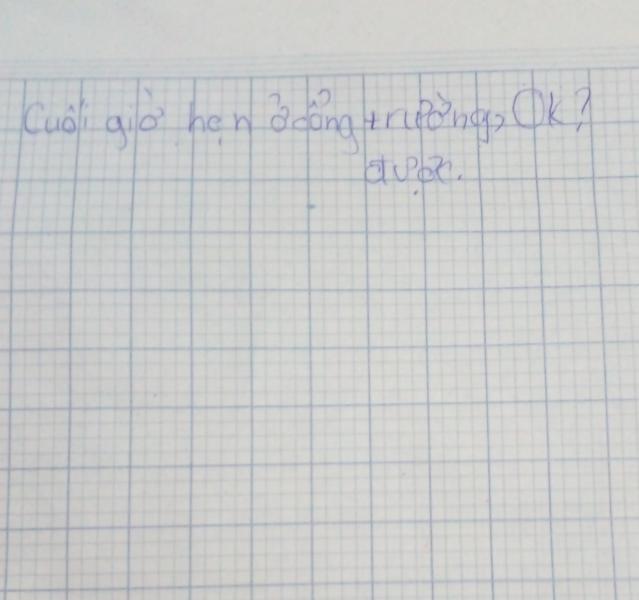 Cuối giờ hẹn ở cổng trường, Ok?
được.